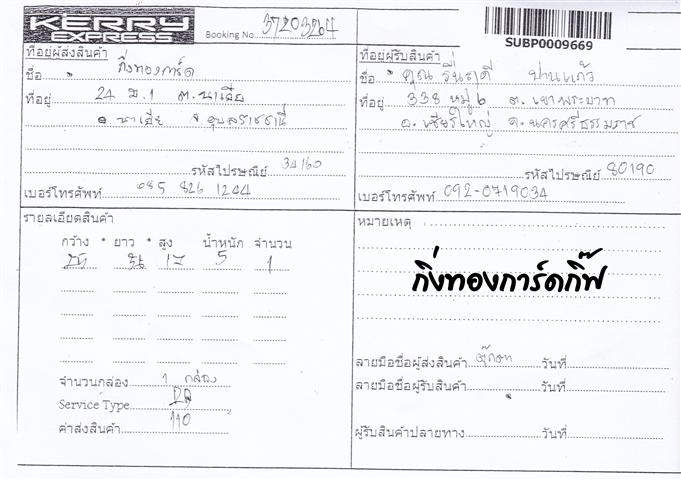 KERRY
EXPRESS
Booking No. 37203264
SUBP0009669
ที่อยู่ผู้ส่งสินค้า
ชื่อ กิ่งทองการ์ด
ที่อยู่ 24 ม.1 ต.นาเยีย
อ.นาเยีย จ.อุบลราชธานี
รหัสไปรษณีย์ 34160
เบอร์โทรศัพท์ 085 826 1204
ที่อยู่ผู้รับสินค้า
ชื่อ คุณ รื่นฤดี ปานแก้ว
ที่อยู่ 338 หมู่ 6 ต. เขาพระบาท
อ. เชียรใหญ่ จ. นครศรีธรรมราช
รหัสไปรษณีย์ 80190
เบอร์โทรศัพท์ 092-0719034
รายละเอียดสินค้า
กว้าง * ยาว * สูง น้ำหนัก จำนวน
17 5 1
จำนวนกล่อง 1 กล่อง
Service Type
ค่าส่งสินค้า 110
หมายเหตุ
กิ่งทองการ์ดกิ๊ฟ
ลายมือชื่อผู้ส่งสินค้า วันที่
ลายมือชื่อผู้รับสินค้า วันที่
ผู้รับสินค้าปลายทาง วันที่